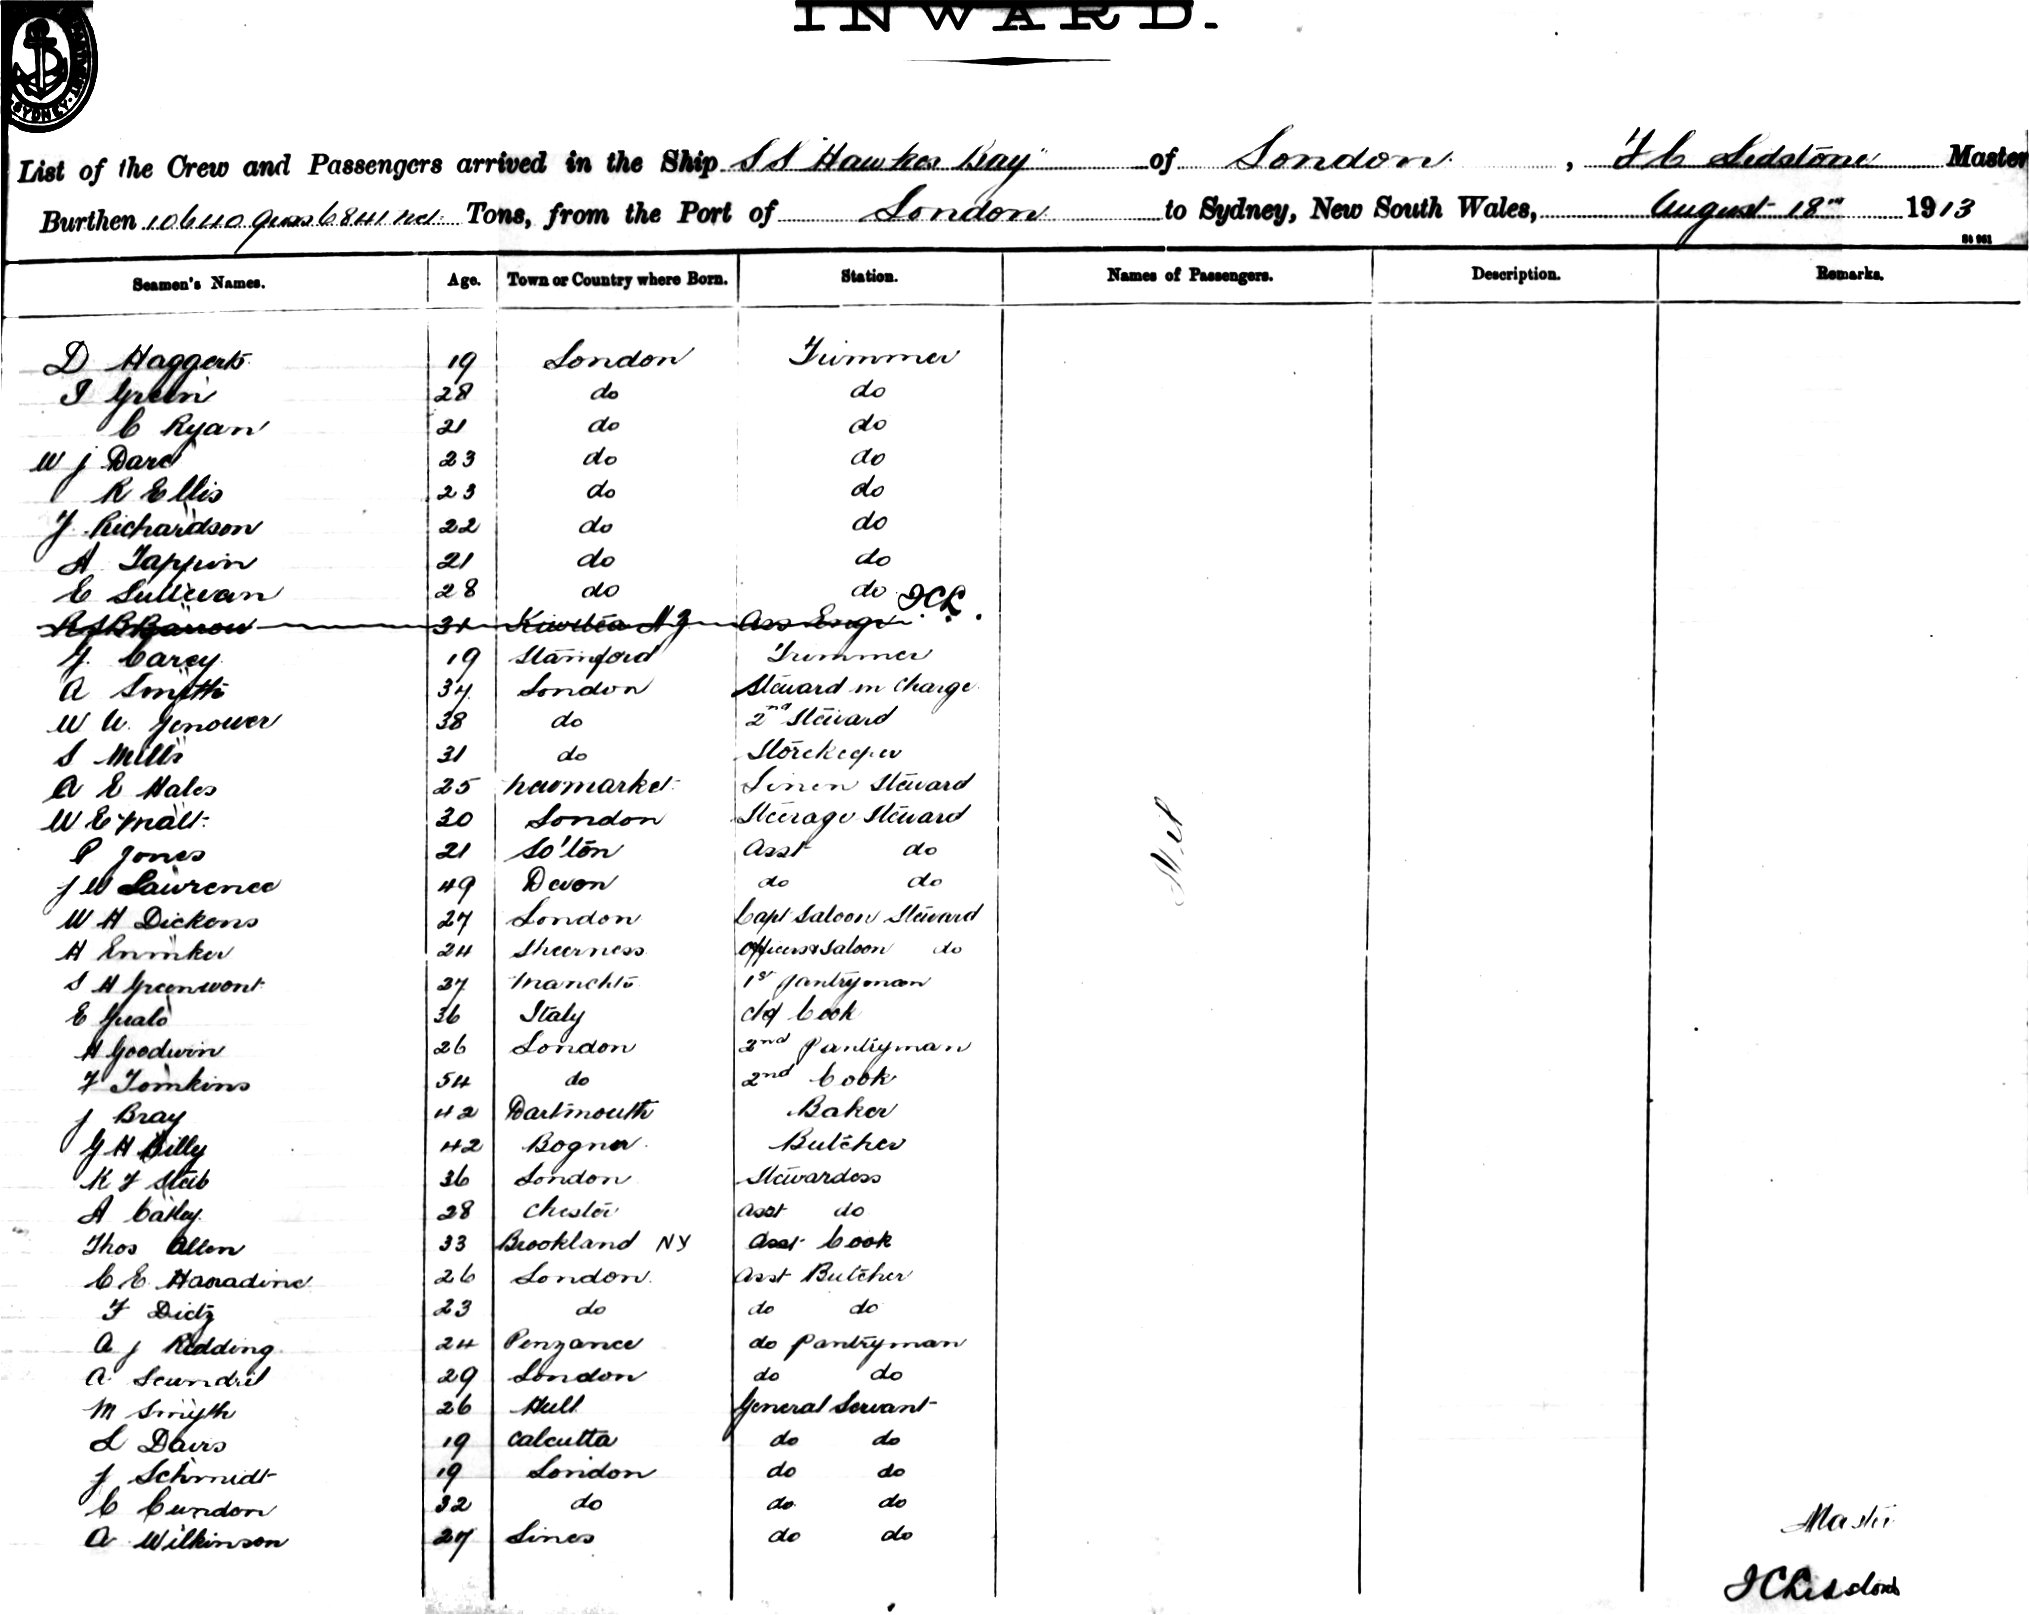 INWARD.
SYDNEY
List of the Crew and Passengers arrived in the Ship SS "Hawkes Bay" of London, Master
Burthen 10640 gross 6841 net Tons, from the Port of London to Sydney, New South Wales, August 18th 1913
Seamen's Names. Age. Town or Country where Born. Station. Names of Passengers. Description. Remarks.
D Haggerty 19 London Trimmer
Green 28 do do
C Ryan 21 do do
W J Dare 23 do do
R Ellis 23 do do
J Richardson 22 do do
A Tappin 21 do do
E Sullivan 28 do do
31 N Z Ass Engr
J. Carey 19 Stamford Trimmer
A Smith 34 London Steward in Charge
W W. Jenower 38 do 2nd Steward
S Mills 31 do Storekeeper
A E Hales 25 Newmarket Linen Steward
W E Malt 30 London Steerage Steward
P Jones 21 So'ton Asst do
J W Lawrence 49 Devon do do
W H Dickens 27 London Capt Saloon Steward
H 24 Sheerness Officers Saloon do
S H Greenwont 27 Manchtr 1st Pantryman
E Gualo 36 Italy Chf Cook
H Goodwin 26 London 2nd Pantryman
F Tomkins 54 do 2nd Cook
J Bray 42 Dartmouth Baker
G H Gilly 42 Bognor Butcher
K F Steib 36 London Stewardess
A Catley 28 Chester Asst do
Thos Allen 33 Brookland NY Asst Cook
C E Haaradine 26 London Asst Butcher
F Dietz 23 do do do
A J Redding 24 Penzance do Pantryman
A Scundrel 29 London do do
M Smyth 26 Hull General Servant
L Davis 19 Calcutta do do
J Schmidt 19 London do do
C Cundon 32 do do do
A Wilkinson 27 Lincs do do
Nil
Master